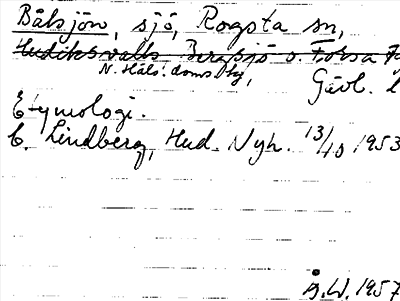 Bålsjön, sjö, Rogsta sn,
Hudiksvalls Bergsjö o. Forsa
N. Häls. doms.
Gävl. l
Etymologi.
C. Lindberg, Hud. Nyh. 13/10 1953
Å.W. 1957